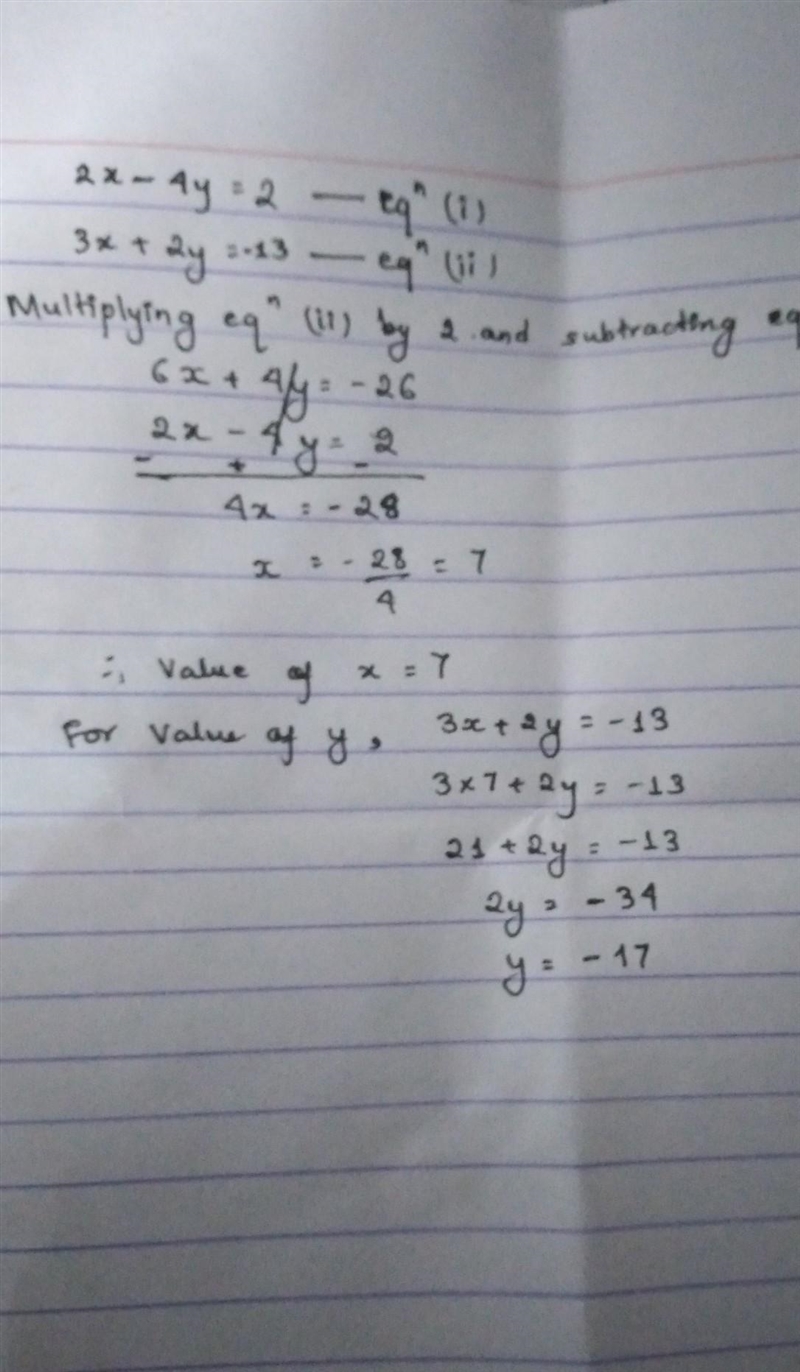 2x - 4y = 2 — eqⁿ (i)
3x + 2y = -13 — eqⁿ (ii)
Multiplying eqⁿ (ii) by 2 and subtracting eq
6x + 4y = -26
2x - 4y = 2
- + -
4x = -28
x = -28/4 = 7
∴ Value of x = 7
For Value of y, 3x + 2y = -13
3 x 7 + 2y = -13
21 + 2y = -13
2y = -34
y = -17